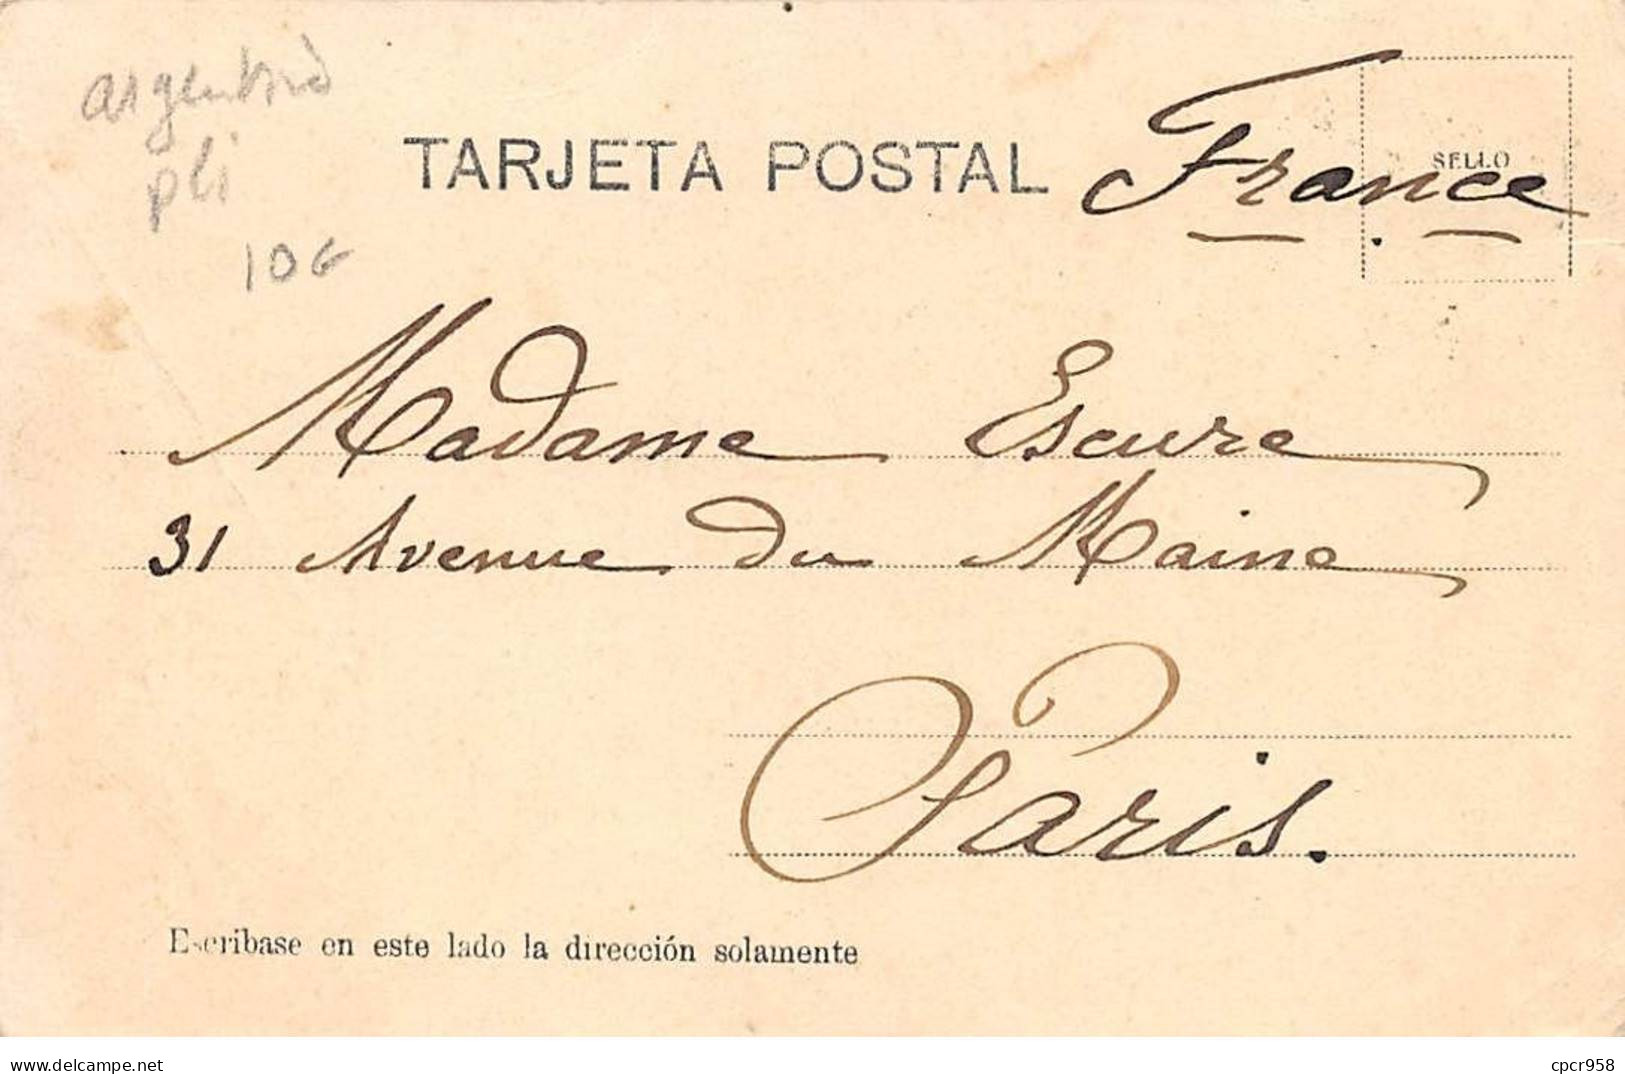 argentine
pli
TARJETA POSTAL
France
SELLO
10€
Madame Escure
31 Avenue du Maine
Paris.
Escribase en este lado la dirección solamente
www.delcampe.net
cpcr958